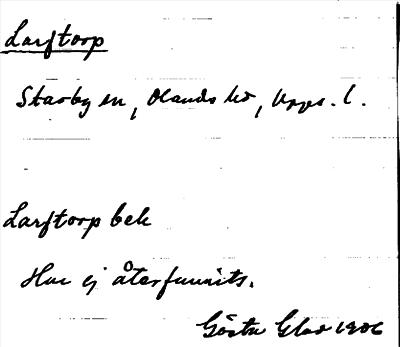 Larftorp
Starby sn, Olands hd, Upps. l.
Larftorp bek
Har ej återfunnits.
Gösta Glad 1906